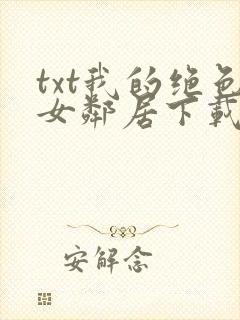 txt我的绝色
女邻居下载
安解念